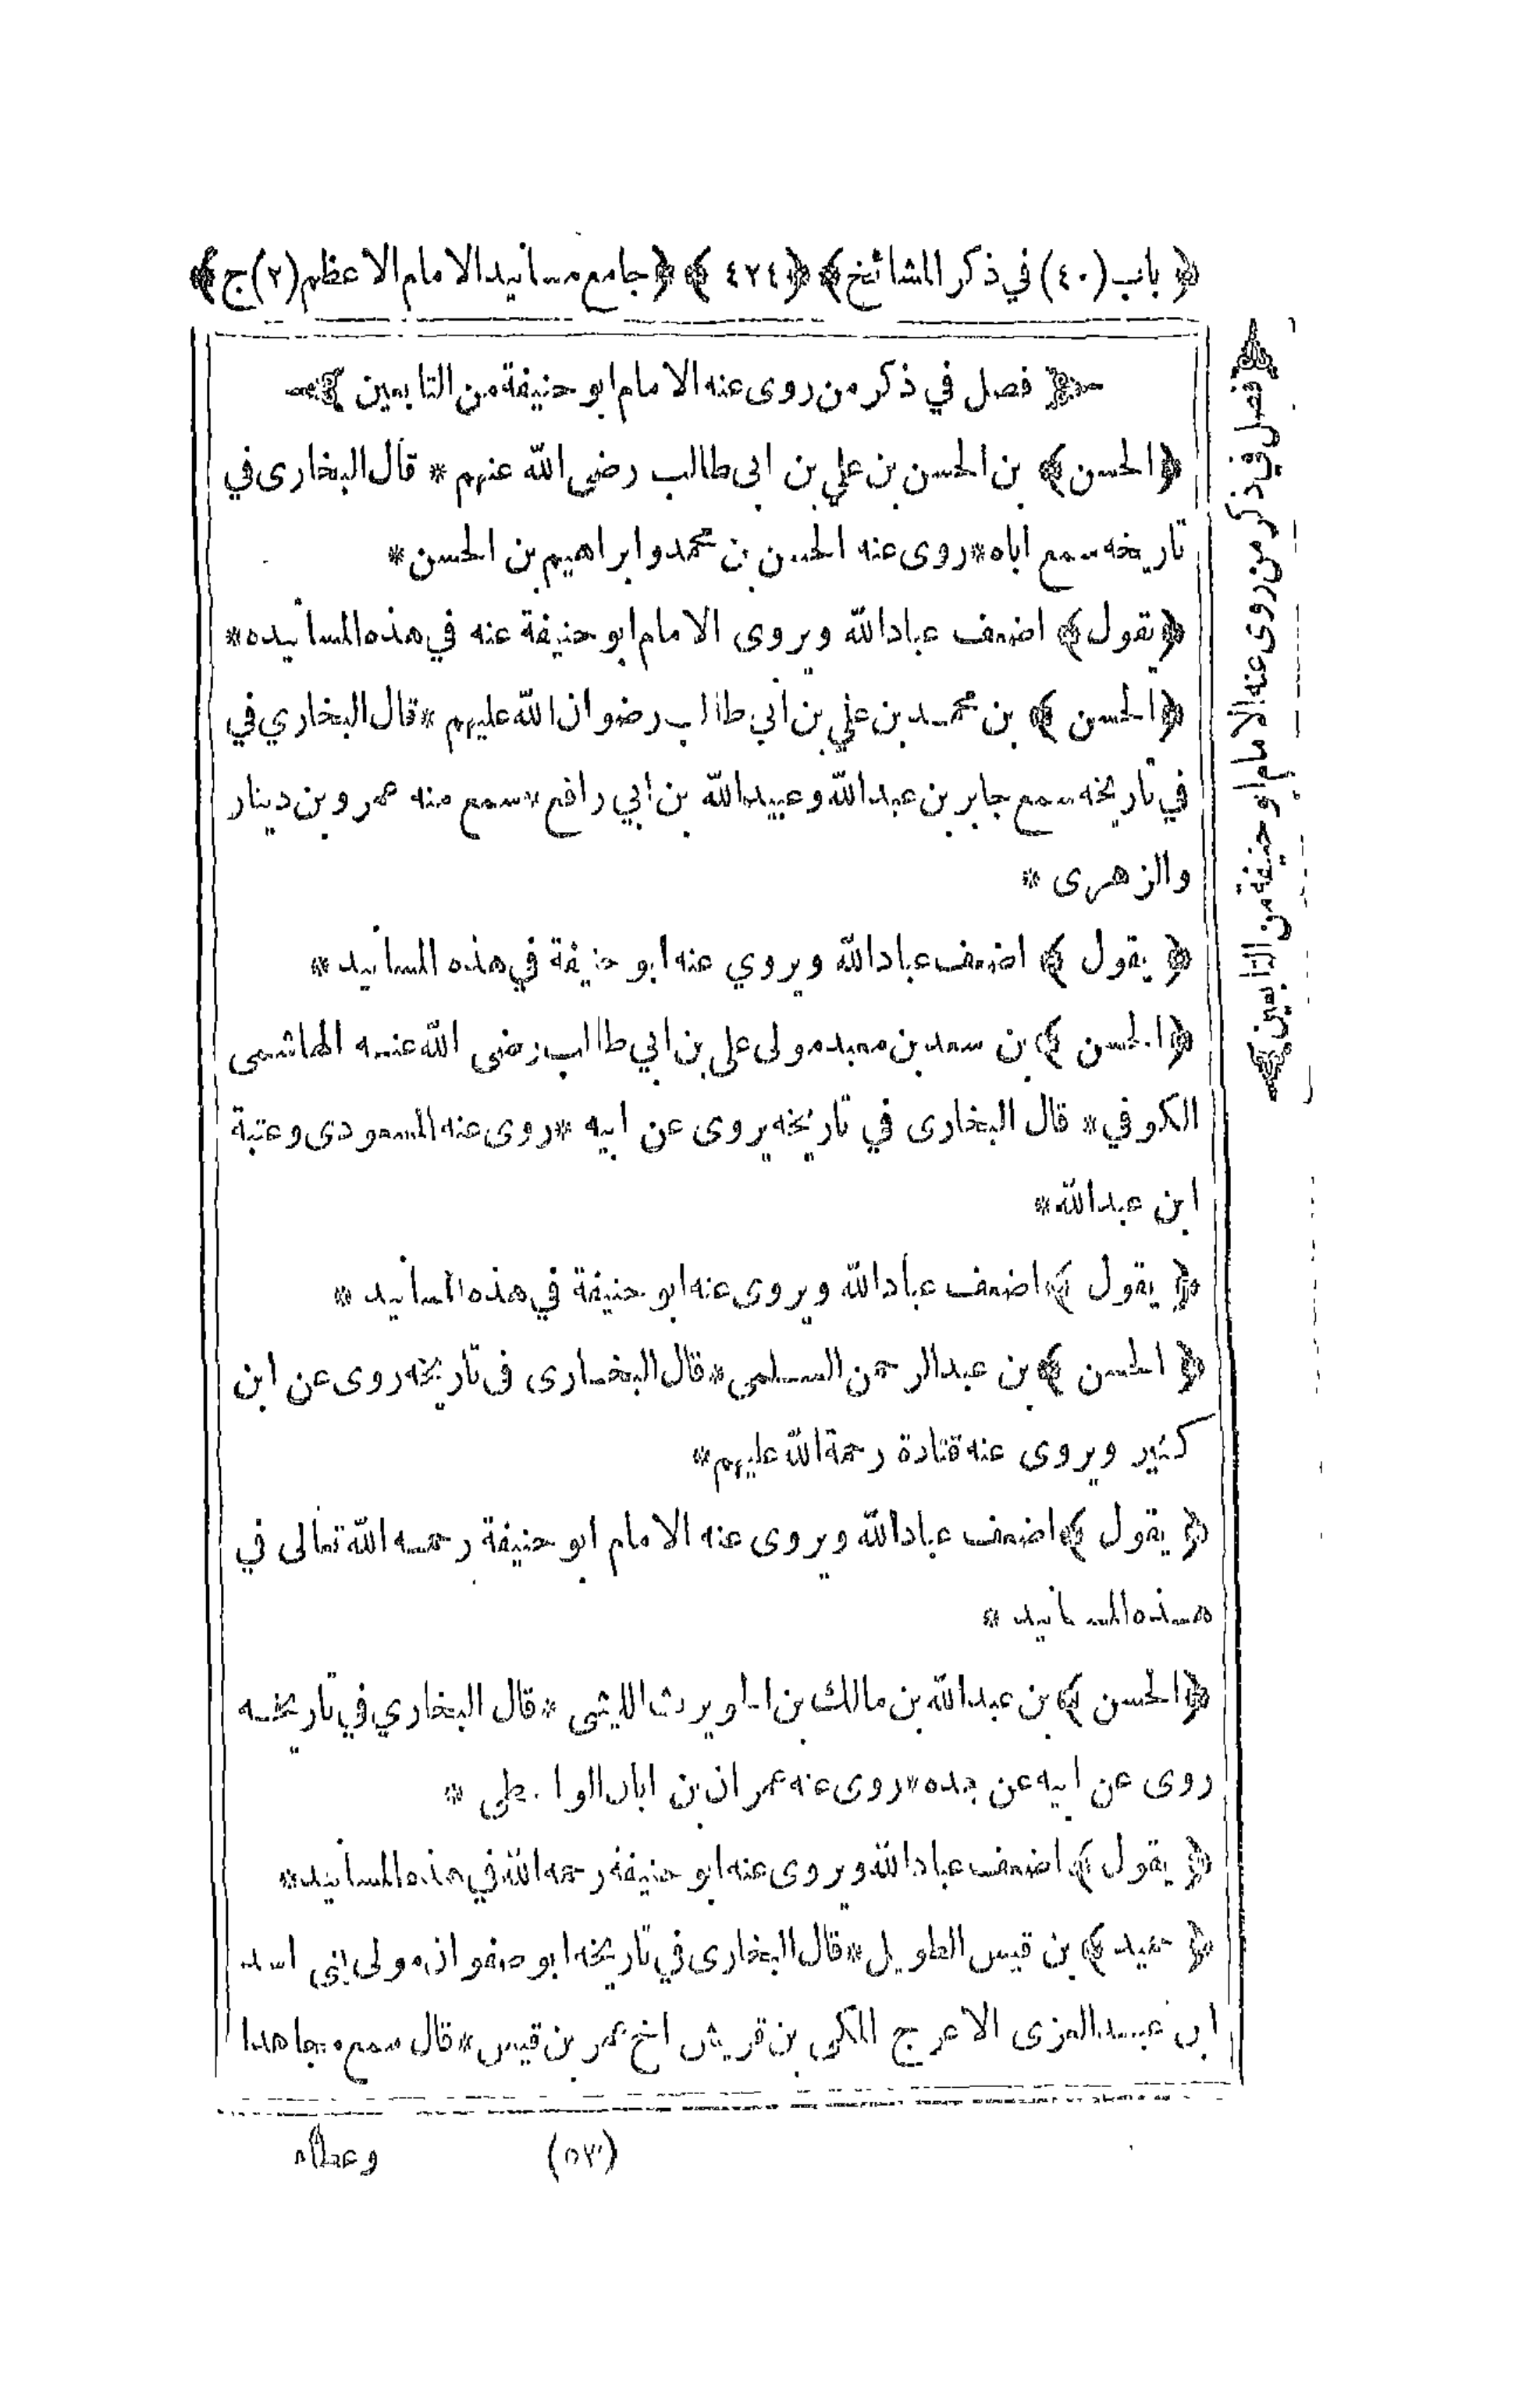 ﴿ باب (٤٠) في ذكر المشائخ ﴾ ﴿ ٤٢٤ ﴾ ﴿ جامع مسانيد الامام الاعظم (٢) ج ﴾
﴿ فصل في ذكر من روى عنه الامام ابو حنيفة من التابعين ﴾
﴿ الحسن ﴾ بن الحسن بن علي بن ابى طالب رضى الله عنهم * قال البخارى في
تاريخه سمع اباه * روى عنه الحسن بن محمد وابراهيم بن الحسن *
﴿ يقول ﴾ اضعف عباد الله ويروى الامام ابو حنيفة عنه في هذه المسانيده *
﴿ الحسن ﴾ بن محمد بن علي بن أبي طالب رضوان الله عليهم * قال البخاري في
في تاريخه سمع جابر بن عبد الله وعبيد الله بن ابي رافع * سمع منه عمرو بن دينار
والزهرى *
﴿ يقول ﴾ اضعف عباد الله ويروي عنه ابو حنيفة في هذه المسانيد *
﴿ الحسن ﴾ بن سعد بن معبد مولى على بن ابي طالب رضى الله عنه الهاشمى
الكوفي * قال البخارى في تاريخه يروى عن ابيه * روى عنه المسعودى وعتبة
ابن عبد الله *
﴿ يقول ﴾ اضعف عباد الله ويروى عنه ابو حنيفة في هذه المسانيد *
﴿ الحسن ﴾ بن عبد الرحمن السلمى * قال البخارى فى تاريخه روى عن ابن
كثير ويروى عنه قتادة رحمة الله عليهم *
﴿ يقول ﴾ اضعف عباد الله ويروى عنه الامام ابو حنيفة رحمه الله تعالى في
هذه المسانيد *
﴿ الحسن ﴾ بن عبد الله بن مالك بن الحويرث الليثى * قال البخاري في تاريخه
روى عن ابيه عن جده * روى عنه عمران بن ابان الواسطي *
﴿ يقول ﴾ اضعف عباد الله ويروى عنه ابو حنيفة رحمه الله في هذه المسانيد *
﴿ حميد ﴾ بن قيس الطويل * قال البخارى في تاريخه ابو صفوان مولى بنى اسد
ابن عبد العزى الاعرج المكى بن قريش اخ عمر بن قيس * قال سمع مجاهدا
(٥٣) وعطاء
﴿ فصل في ذكر من روى عنه الامام ابو حنيفة من التابعين ﴾